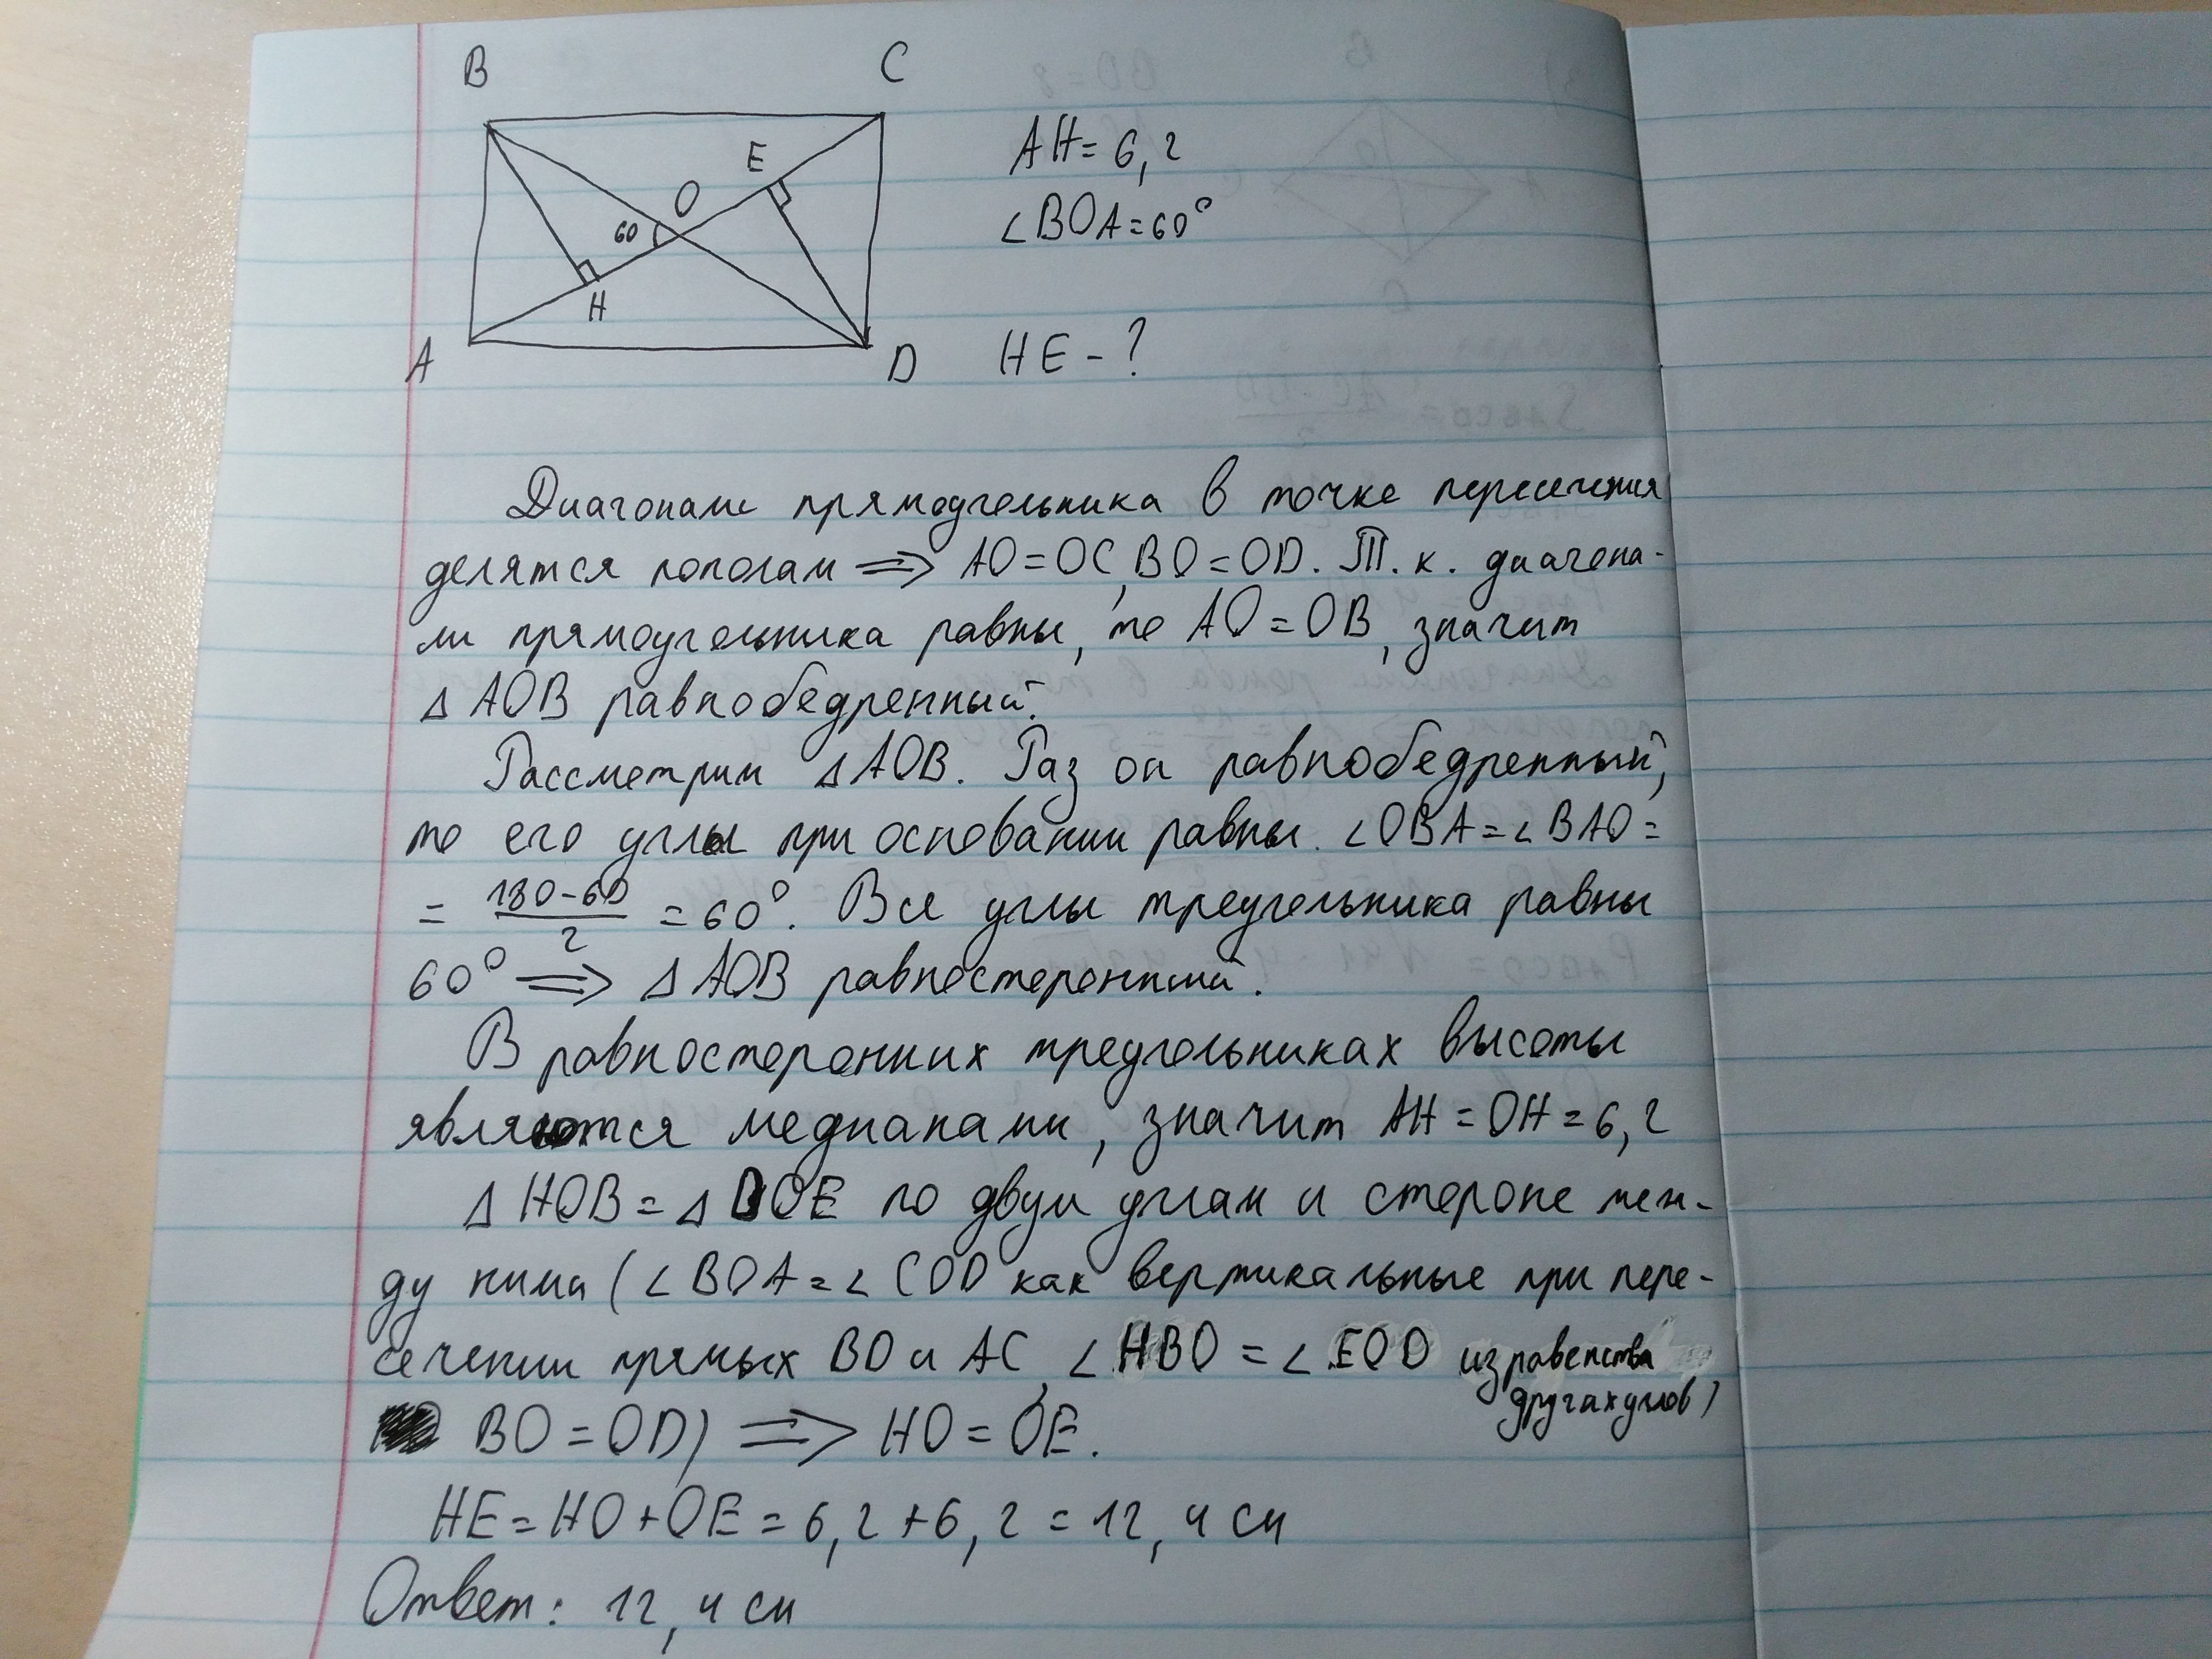 B C
AH = 6,2
E
O
60
∠BOA = 60°
H
A D HE - ?
Диагонали прямоугольника в точке пересечения
делятся пополам => AO = OC, BO = OD. Т. к. диагона-
ли прямоугольника равны, то AO = OB, значит
△ AOB равнобедренный.
Рассмотрим △ AOB. Раз он равнобедренный,
то его углы при основании равны. ∠OBA = ∠BAO =
= (180 - 60)/2 = 60°. Все углы треугольника равны
60° => △ AOB равносторонний.
В равносторонних треугольниках высоты
являются медианами, значит AH = OH = 6,2
△ HOB = △ DOE по двум углам и стороне меж-
ду ними (∠BOA = ∠COD как вертикальные при пере-
сечении прямых BD и AC, ∠HBO = ∠EOD из равенства
других углов)
BO = OD) => HO = OE.
HE = HO + OE = 6,2 + 6,2 = 12,4 см
Ответ: 12,4 см